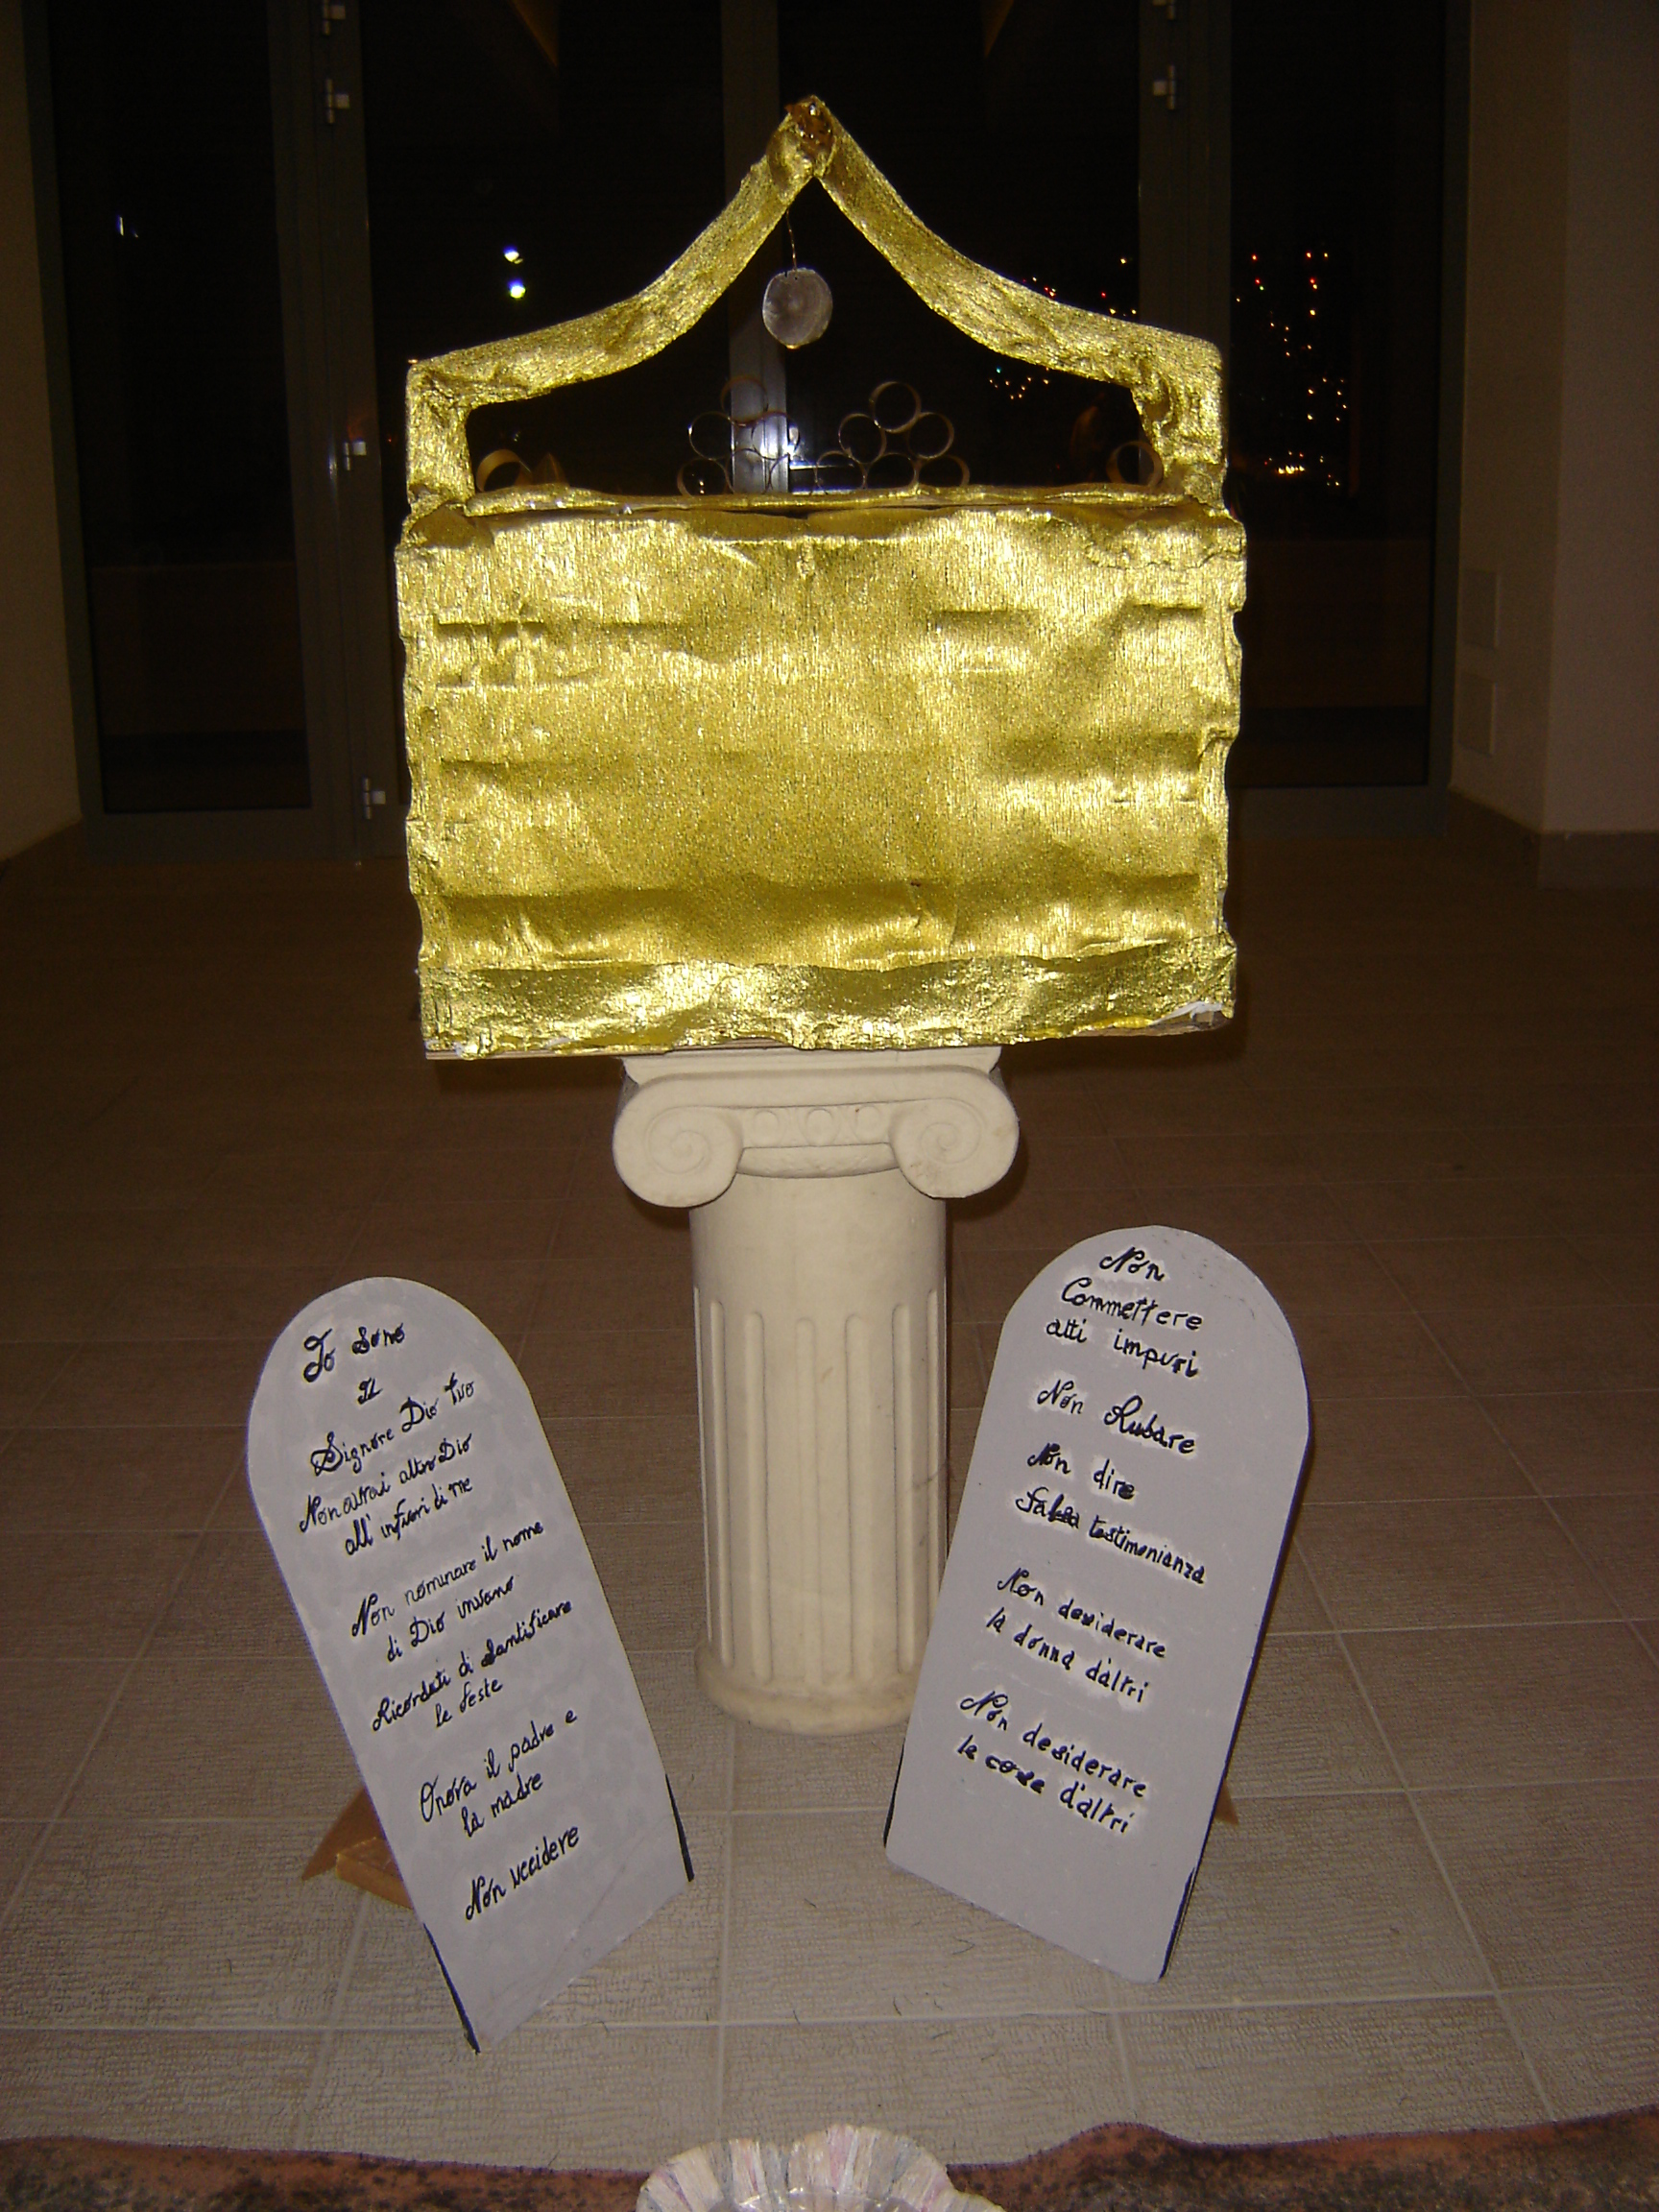 Io sono
il
Signore Dio tuo
Non avrai altro Dio
all' infuori di me
Non nominare il nome
di Dio invano
Ricordati di Santificare
le feste
Onora il padre e
la madre
Non uccidere
Non
Commettere
atti impuri
Non Rubare
Non dire
falsa testimonianza
Non desiderare
la donna d'altri
Non desiderare
le cose d'altri